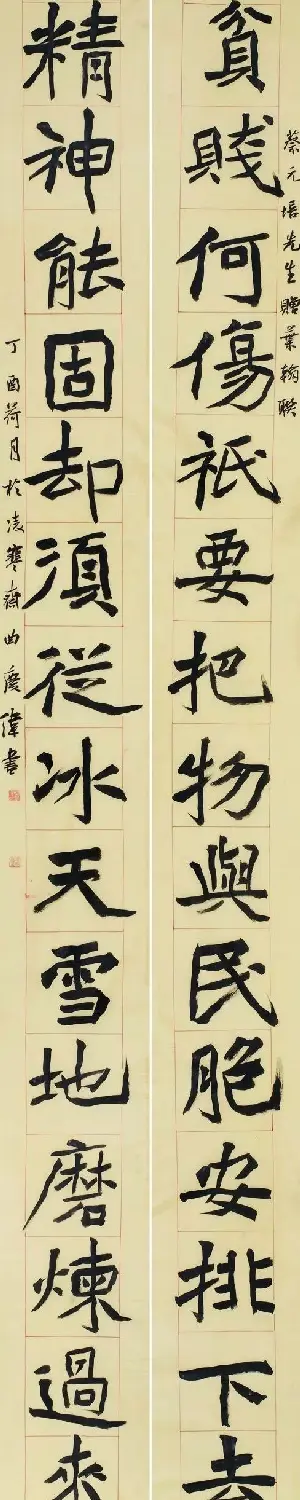 蔡元培先生贈葉翰聯
貧賤何傷祇要把物與民胞安排下去
精神能固却須從冰天雪地磨煉過來
丁酉荷月於凌寒齋曲慶偉書